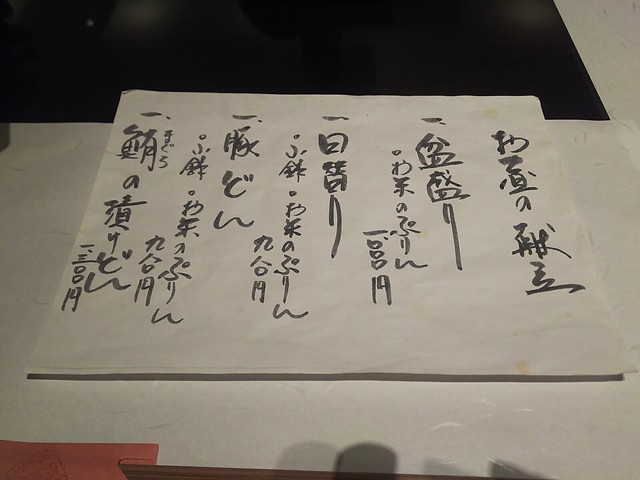 お昼の献立
一、盆盛り
。お米のぷりん
一、日替り
。小鉢。お米のぷりん
九八〇円
一、豚どん
。小鉢。お米のぷりん
九八〇円
一、鮪の漬けどん
まぐろ
一三〇〇円